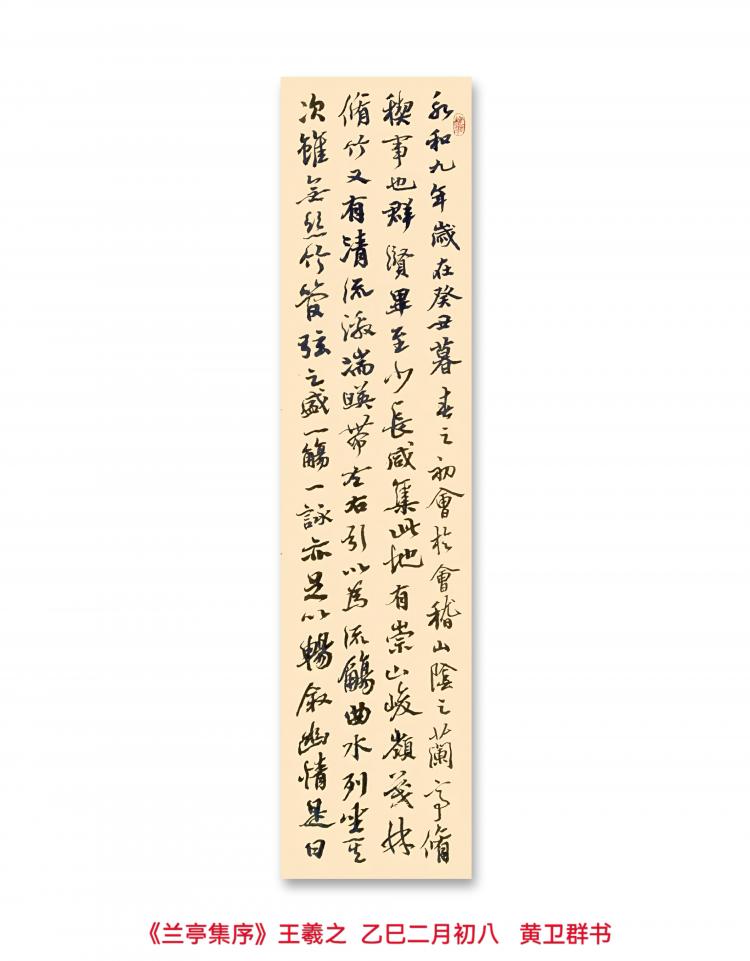 永和九年歲在癸丑暮春之初會於會稽山陰之蘭亭脩
稧事也群賢畢至少長咸集此地有崇山峻嶺茂林
脩竹又有清流激湍暎帶左右引以為流觴曲水列坐其
次雖無絲竹管弦之盛一觴一詠亦足以暢敘幽情是日
《兰亭集序》王羲之 乙巳二月初八 黄卫群书